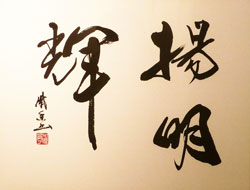 揚明
輝